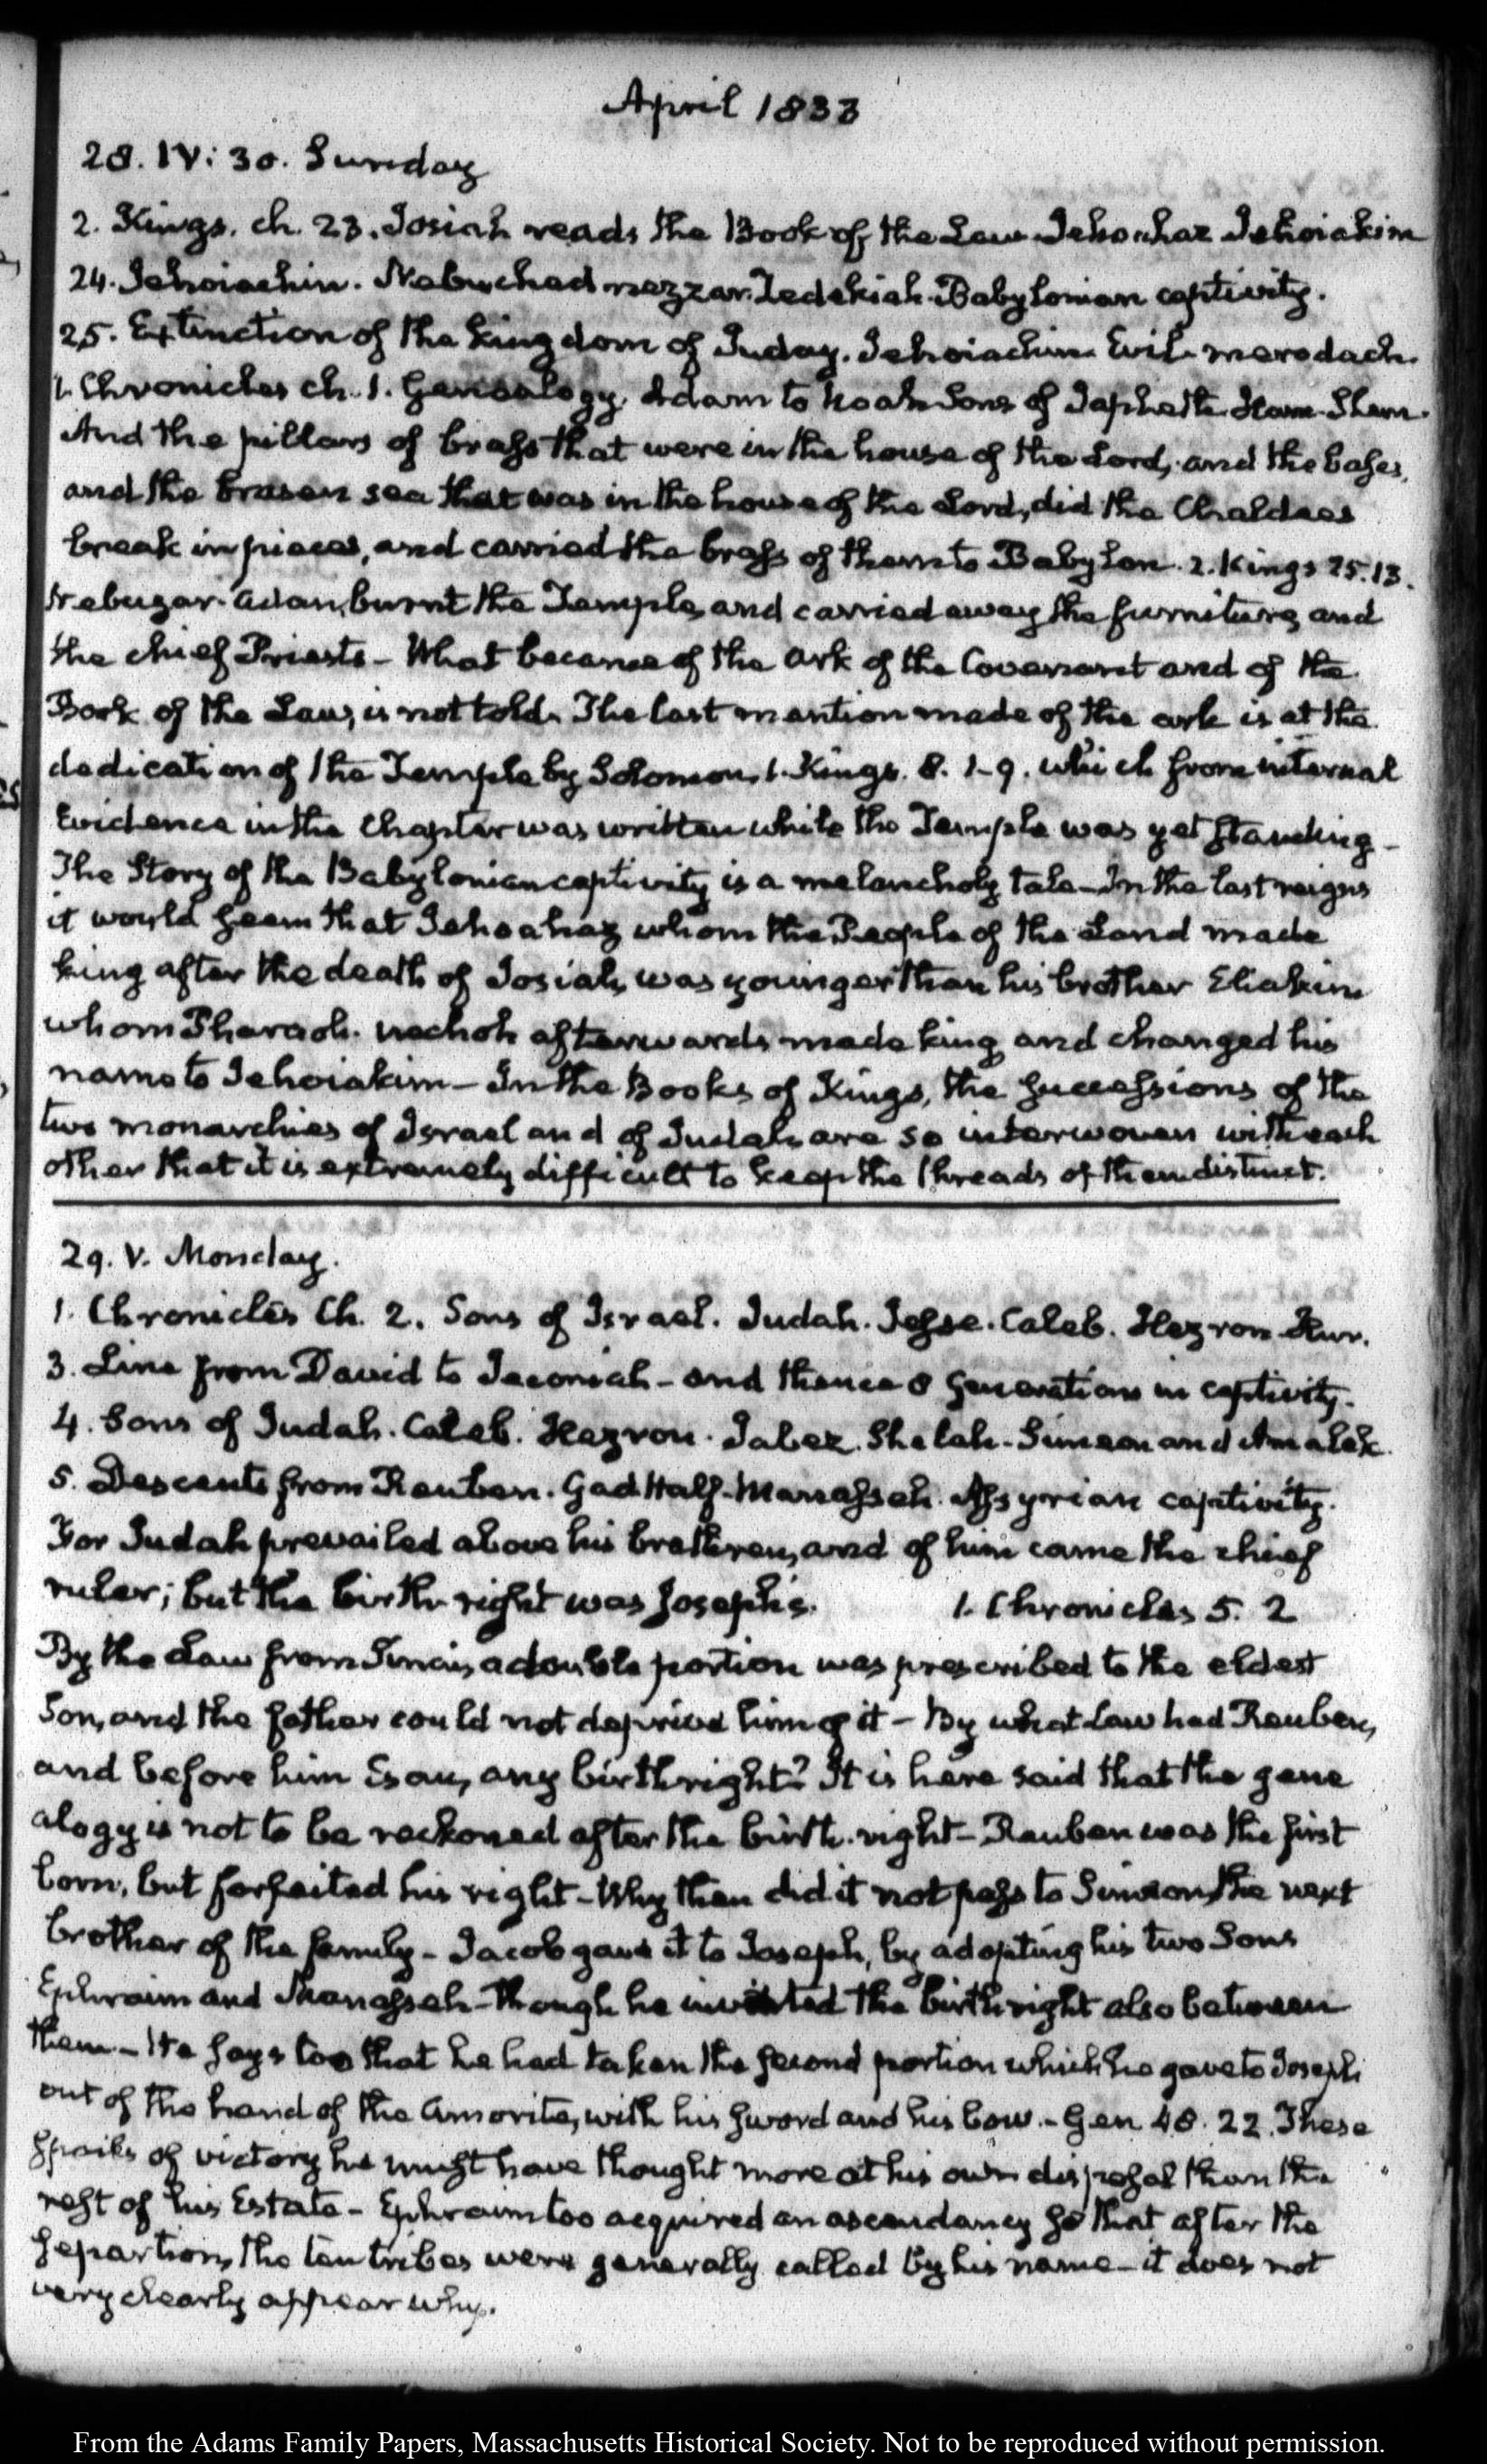 April 1833
28. IV: 30. Sunday
2. Kings. ch. 23. Josiah reads the Book of the Law Jehoahaz Jehoiakim
24. Jehoiachin. Nebuchadnezzar. Zedekiah. Babylonian captivity.
25. Extinction of the kingdom of Juday. Jehoiachin Evil-merodach.
1. Chronicles ch. 1. Genealogy. Adam to Noah Sons of Japheth Ham. Shem.
And the pillars of brass that were in the house of the Lord, and the bases,
and the brasen sea that was in the house of the Lord, did the Chaldees
break in pieces, and carried the brass of them to Babylon. 2. Kings 25.13.
Nebuzar-adan, burnt the Temple, and carried away the furniture, and
the chief Priests – What became of the ark of the Covenant and of the
Book of the Law, is not told. The last mention made of the ark is at the
dedication of the Temple by Solomon, 1. Kings. 8. 1-9. which from internal
Evidence in the Chapter was written while the Temple was yet standing –
The Story of the Babylonian captivity is a melancholy tale – In the last reigns
it would seem that Jehoahaz whom the People of the Land made
king after the death of Josiah, was younger than his brother Eliakim
whom Pharaoh-nechoh afterwards made king and changed his
name to Jehoiakim – In the Books of Kings, the successions of the
two monarchies of Israel and of Judah are so interwoven with each
other that it is extremely difficult to keep the threads of them distinct.
29. V. Monday.
1. Chronicles Ch. 2. Sons of Israel. Judah. Jesse. Caleb. Hezron. Hur.
3. Line from David to Jeconiah – and thence 8 generations in captivity.
4. Sons of Judah. Caleb. Hezron. Jabez. Shelah. Simeon and Amalek.
5. Descents from Reuben. Gad Half-Manasseh. Assyrian captivity.
For Judah prevailed above his brethren, and of him came the chief
ruler; but the birth-right was Joseph's. 1. Chronicles 5. 2
By the Law from Sinai, a double portion was prescribed to the eldest
Son, and the father could not deprive him of it – By what Law had Reuben,
and before him Esau, any birthright? It is here said that the gene
alogy is not to be reckoned after the birth-right – Reuben was the first
born, but forfeited his right – Why then did it not pass to Simeon, the next
brother of the family – Jacob gave it to Joseph, by adopting his two Sons
Ephraim and Manasseh – though he inverted the birthright also between
them – He says too that he had taken the second portion which he gave to Joseph
out of the hand of the Amorite, with his sword and his bow. – Gen 48. 22. These
spoils of victory he must have thought more at his own disposal than the
rest of his Estate – Ephraim too acquired an ascendancy so that after the
separtion, the ten tribes were generally called by his name – it does not
very clearly appear why.
From the Adams Family Papers, Massachusetts Historical Society. Not to be reproduced without permission.